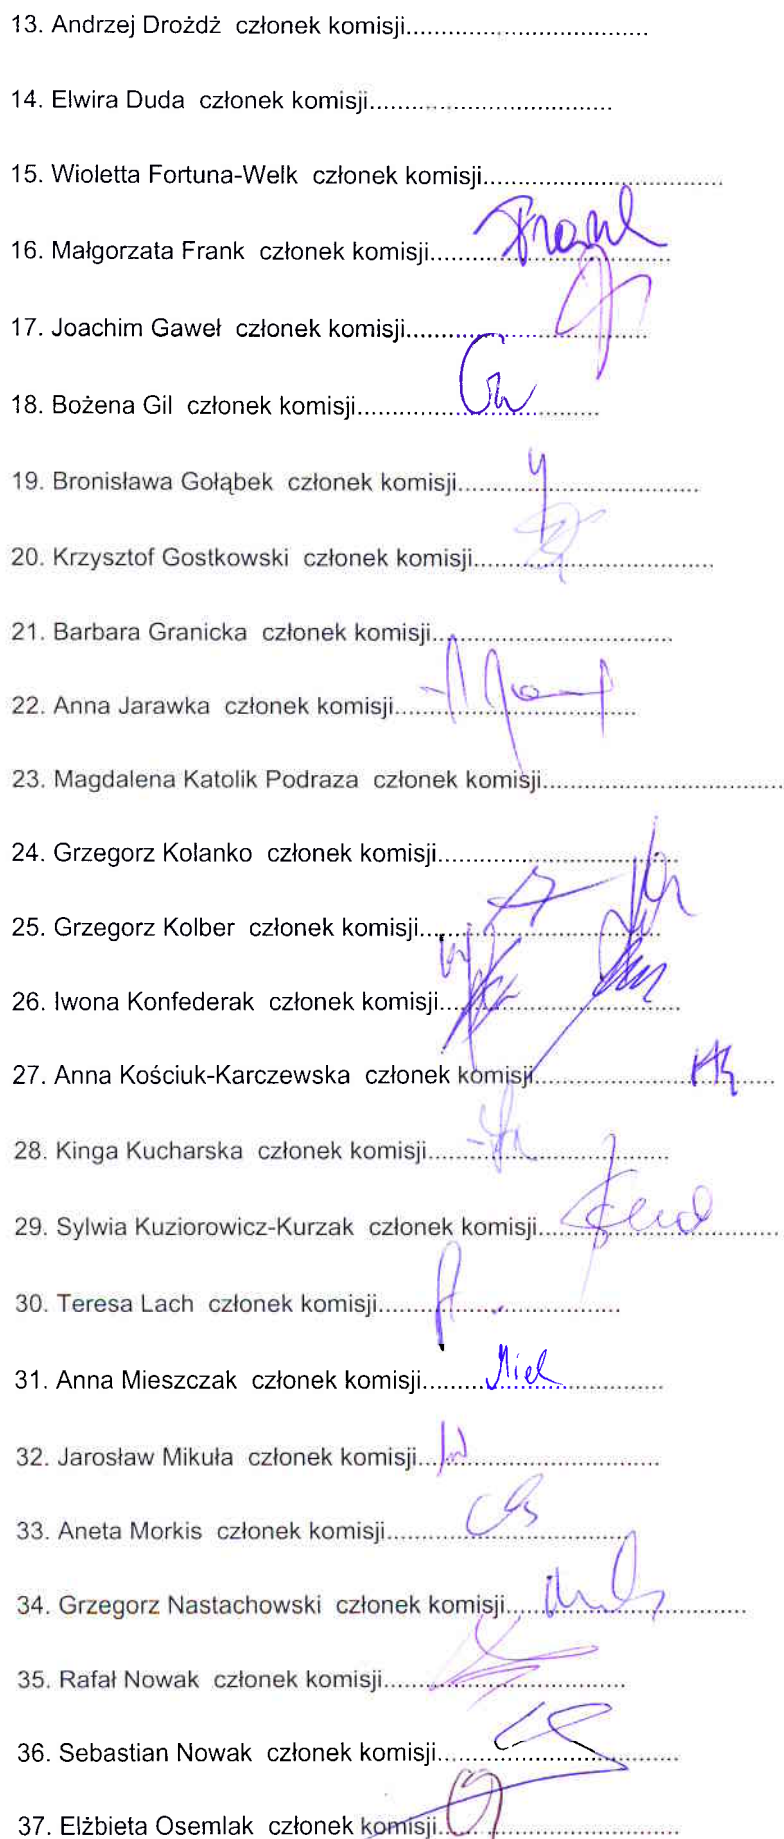 13. Andrzej Drożdż członek komisji....................................
14. Elwira Duda członek komisji....................................
15. Wioletta Fortuna-Welk członek komisji....................................
16. Małgorzata Frank członek komisji.................................... Frank
17. Joachim Gaweł członek komisji....................................
18. Bożena Gil członek komisji....................................
19. Bronisława Gołąbek członek komisji....................................
20. Krzysztof Gostkowski członek komisji....................................
21. Barbara Granicka członek komisji....................................
22. Anna Jarawka członek komisji....................................
23. Magdalena Katolik Podraza członek komisji....................................
24. Grzegorz Kolanko członek komisji....................................
25. Grzegorz Kolber członek komisji....................................
26. Iwona Konfederak członek komisji....................................
27. Anna Kościuk-Karczewska członek komisji....................................
28. Kinga Kucharska członek komisji....................................
29. Sylwia Kuziorowicz-Kurzak członek komisji....................................
30. Teresa Lach członek komisji....................................
31. Anna Mieszczak członek komisji....................................
32. Jarosław Mikuła członek komisji....................................
33. Aneta Morkis członek komisji....................................
34. Grzegorz Nastachowski członek komisji....................................
35. Rafał Nowak członek komisji....................................
36. Sebastian Nowak członek komisji....................................
37. Elżbieta Osemlak członek komisji....................................